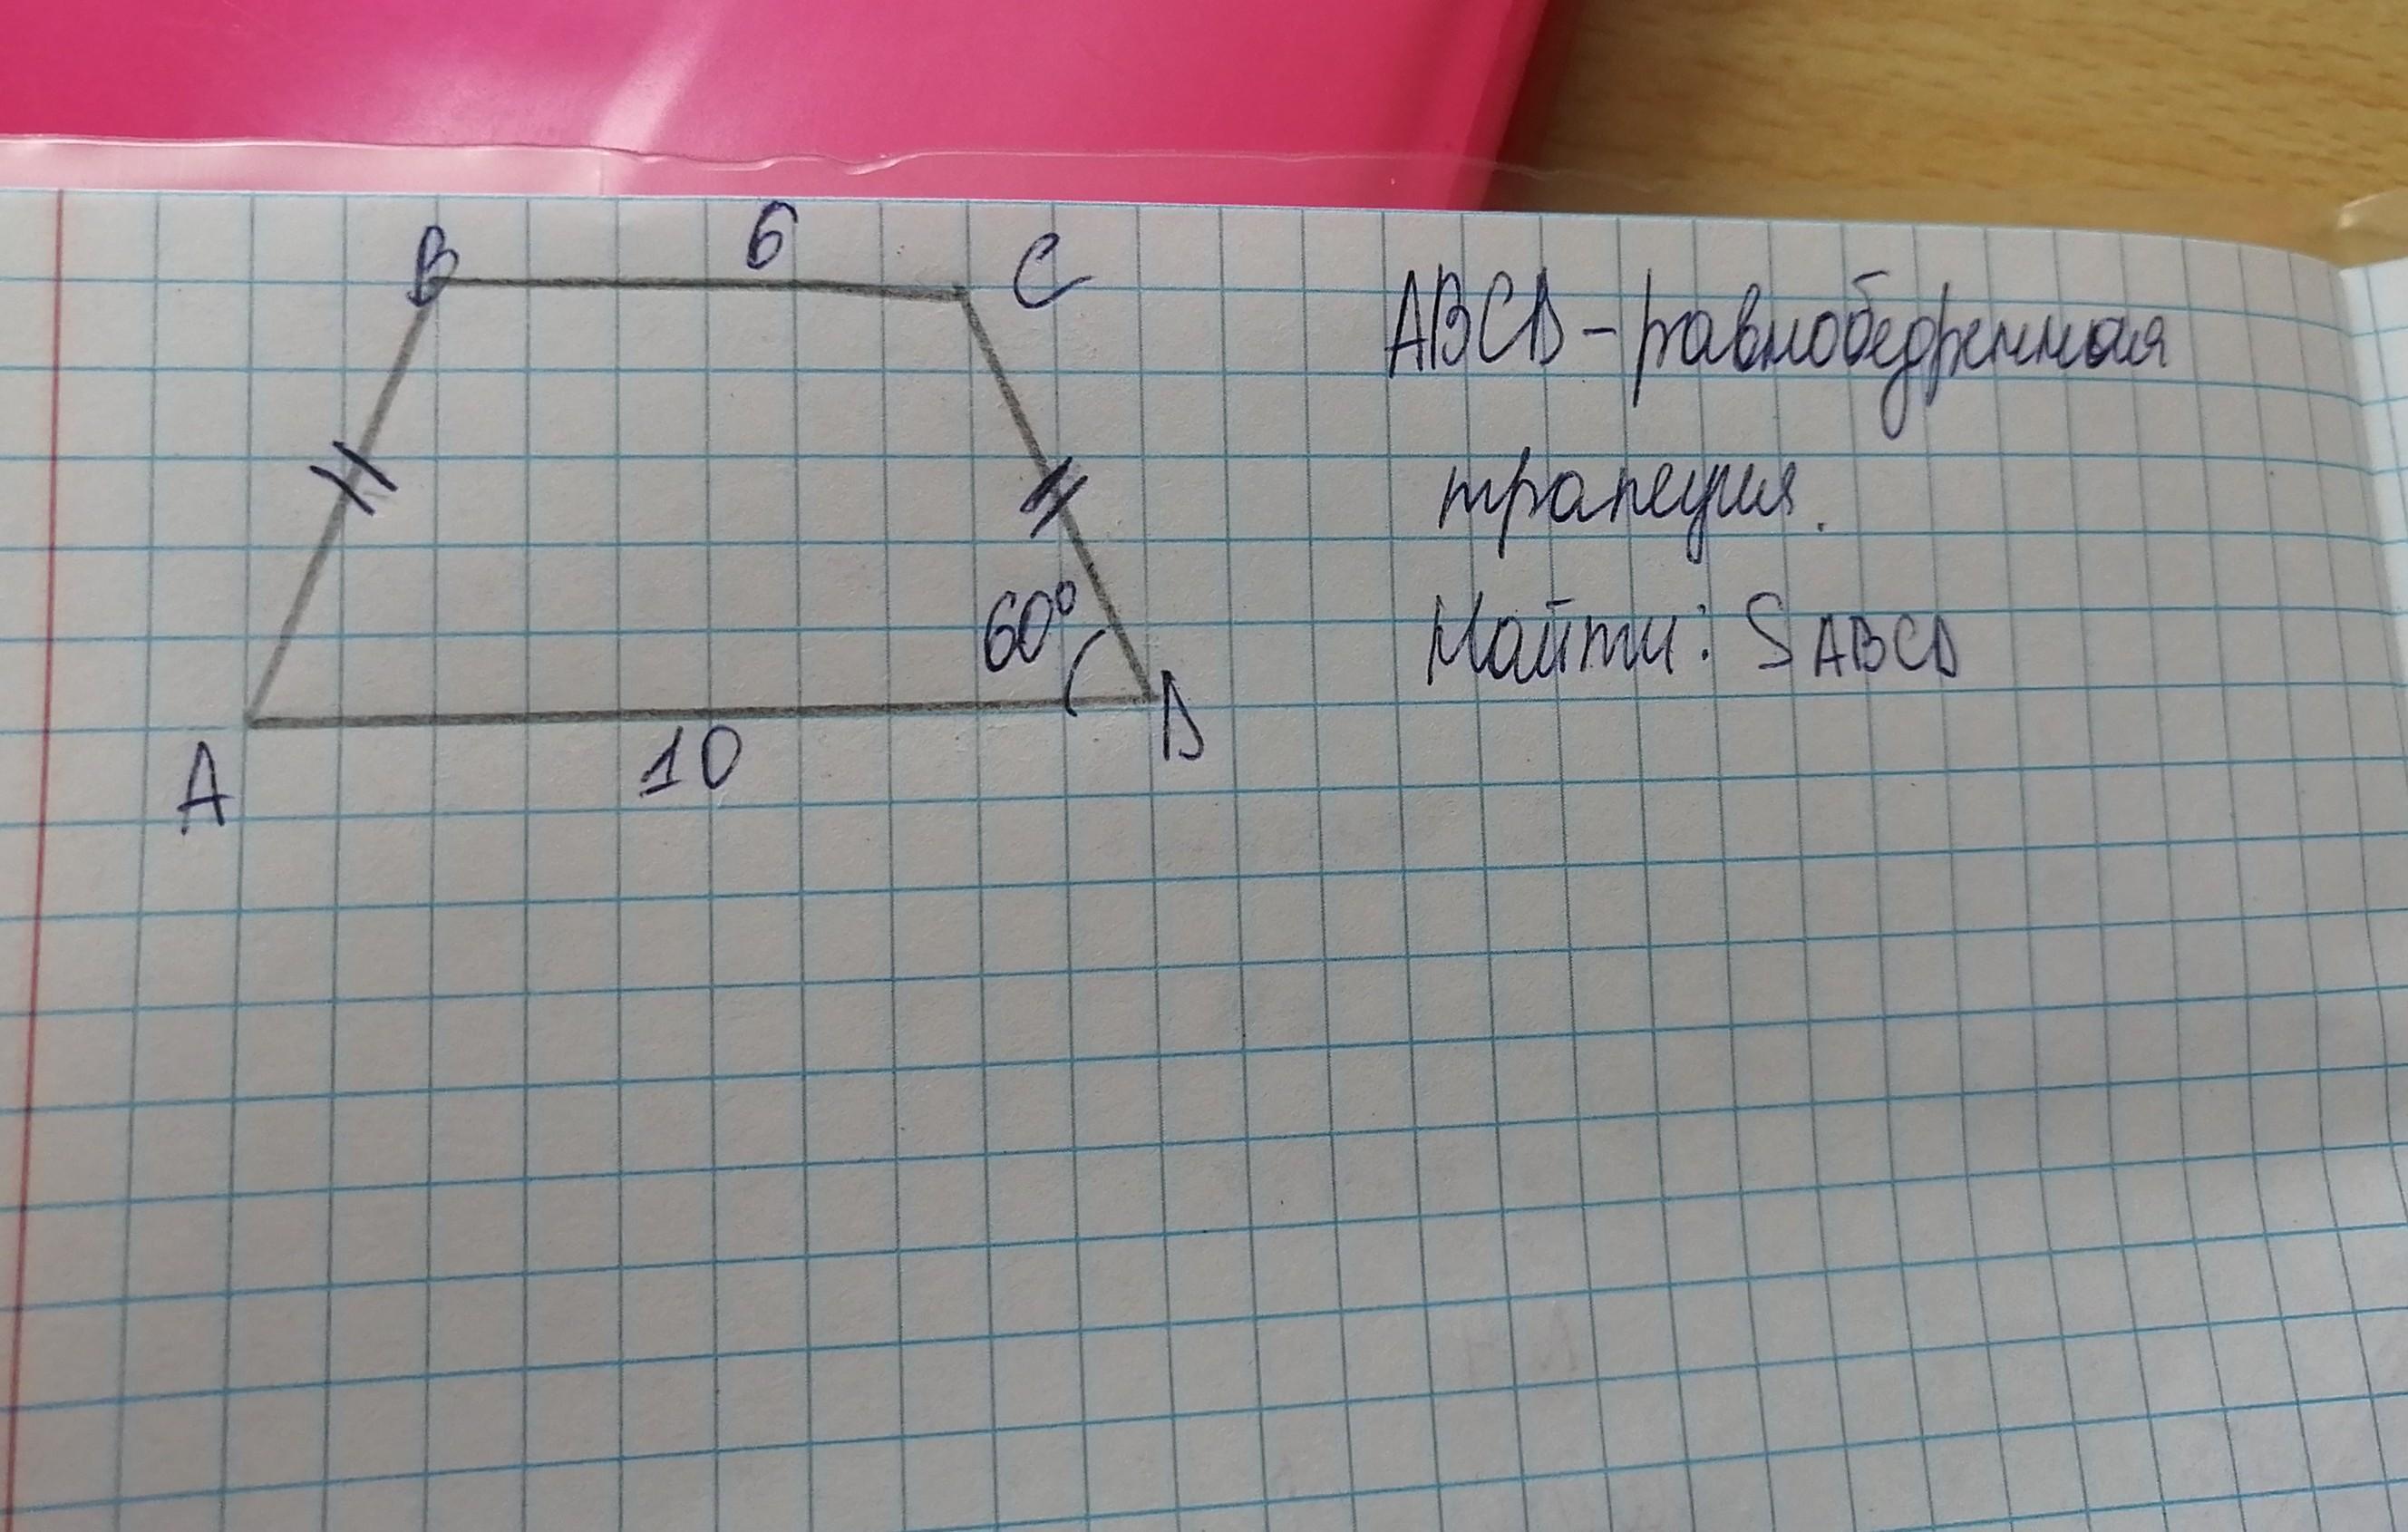 B 6 C
60°
A 10 D
ABCD – равнобедренная
трапеция.
Найти: SABCD